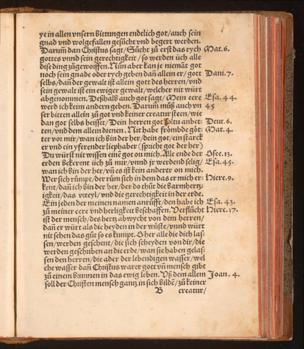 ye in allen vnsern bittungen endtlich got/ auch sein
gnad vnd wolgefallen gesücht vnd begert werden.
Darum̃ dan Christus sagt/ Sücht zü erst das rych Mat. 6.
gottes vnnd sein gerechtigkeit/ so werden üch alle
dise ding zügeworffen. Nun aber kan ye nieman got
noch sein gnade oder rych geben dan̄ allein er/ got Dani. 7.
selbs/ dan̄ der gewalt ist allein gott des herren/ vnd
sein gewalt ist ein ewiger gewalt/ welcher nit würt
abgenommen. Deßhalb auch got sagt/ Mein eere Esa. 44
werd ich keim andern geben. Darum̃ můß auch vn 45
ser bitten allein zü got vnd keiner creatur sein/ wie
dan got selbs heisset/ Dein herren got soltu anbet Deut. 6.
ten/ vnd dem allem dienen. Nit habe frömbde göt Mat. 4.
ter vor mir/ wan ich bin der her/ dein got/ ein starck
er vnd ein yferender liephaber (spricht got der her)
Du würst nit wissen eine got on mich. All ende der Osee. 13.
erden bekerent üch zü mir/ vnnd ir werdend selig/ Esa. 45.
wan ich bin der her/ vn̄ es ist kein anderer on mich.
Wer sich rümpt/ der rüm sich in dem das er mich er Hiere. 9.
kent/ dan̄ ich bin der her/ der do thüt die barmhertz
igkeit/ das vrteyl/ vnd die gerechtigkeit in der erde.
Ein jeden der meinen namen anrüfft/ den habe ich Esa. 43.
zü meiner eere vnd herligkeit beschaffen. Verflücht Hiere. 17.
ist der mensch/ des hertz abwycht von dem herren/
dan̄ er würt als die heyden in der wüste/ vnnd würt
nit sehen das güt so es kumpt. Her alle die dich las
sen/ werden geschent/ die sich scheyden von dir/ die
werden geschriben an die erde/ wan sie haben gelas
sen den herren/ die ader der lebendigen wasser/ wel
che wasser dan̄ Christus warer got vn̄ mensch gibt
zü einem brunnen in das ewig leben. Vß dem allem Joan. 4.
soll der Christen mensch gantz in sich bilde/ zü keiner
B creatur/